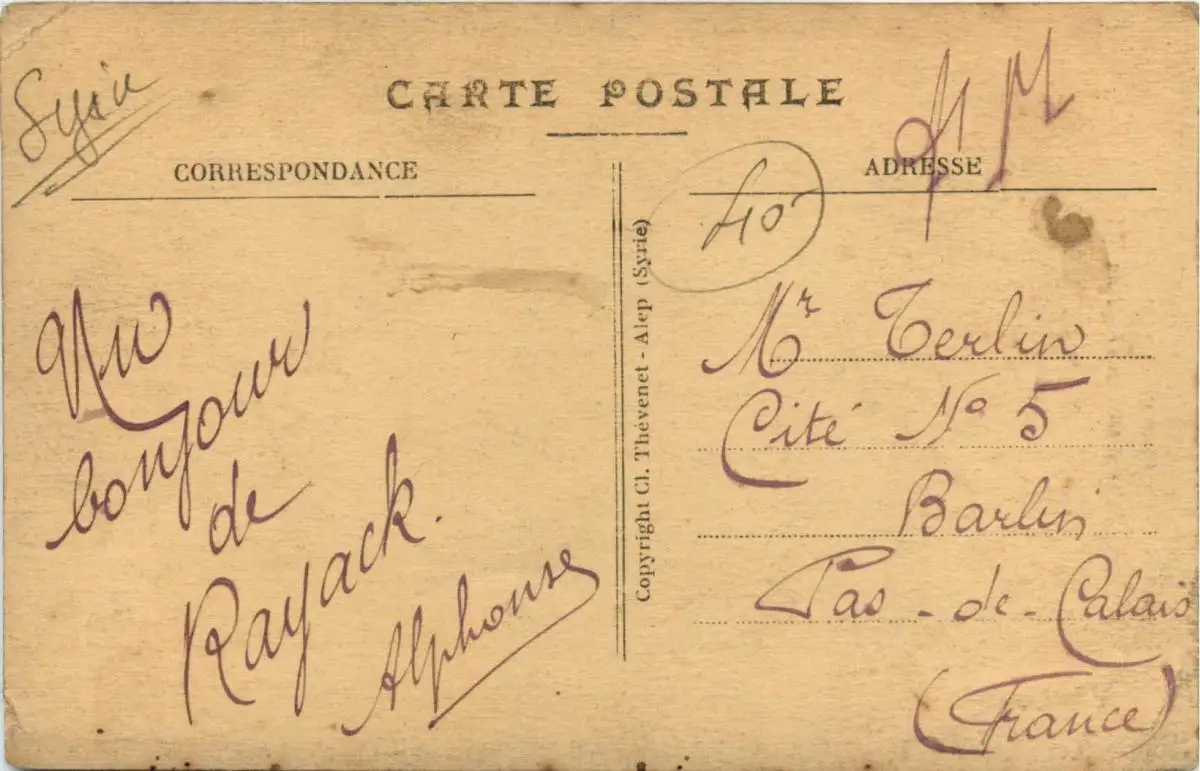 CARTE POSTALE
Syrie
CORRESPONDANCE
Un
bonjour
de
Rayack.
Alphonse
Copyright Cl. Thévenet - Alep (Syrie)
40
FM
ADRESSE
Mr Terlin
Cité No 5
Barlin
Pas-de-Calais
(France)